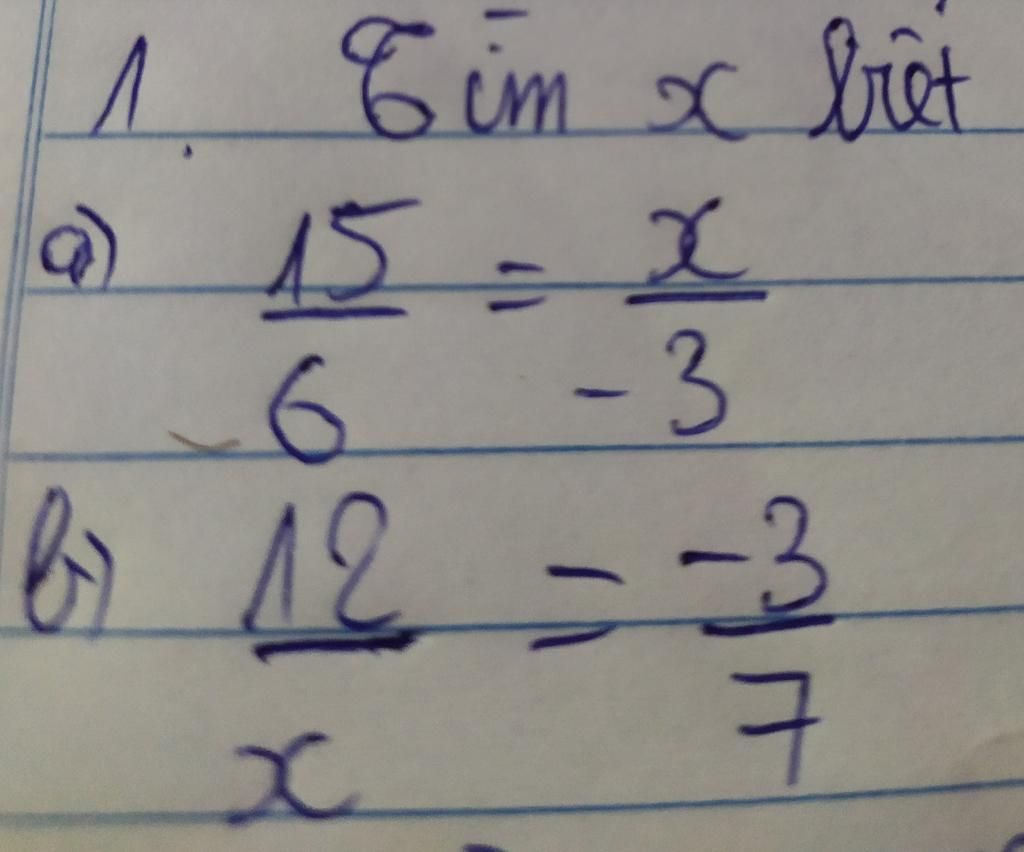 1. Tìm x biết
a) 15/6 = x/-3
b) 12/x = -3/7